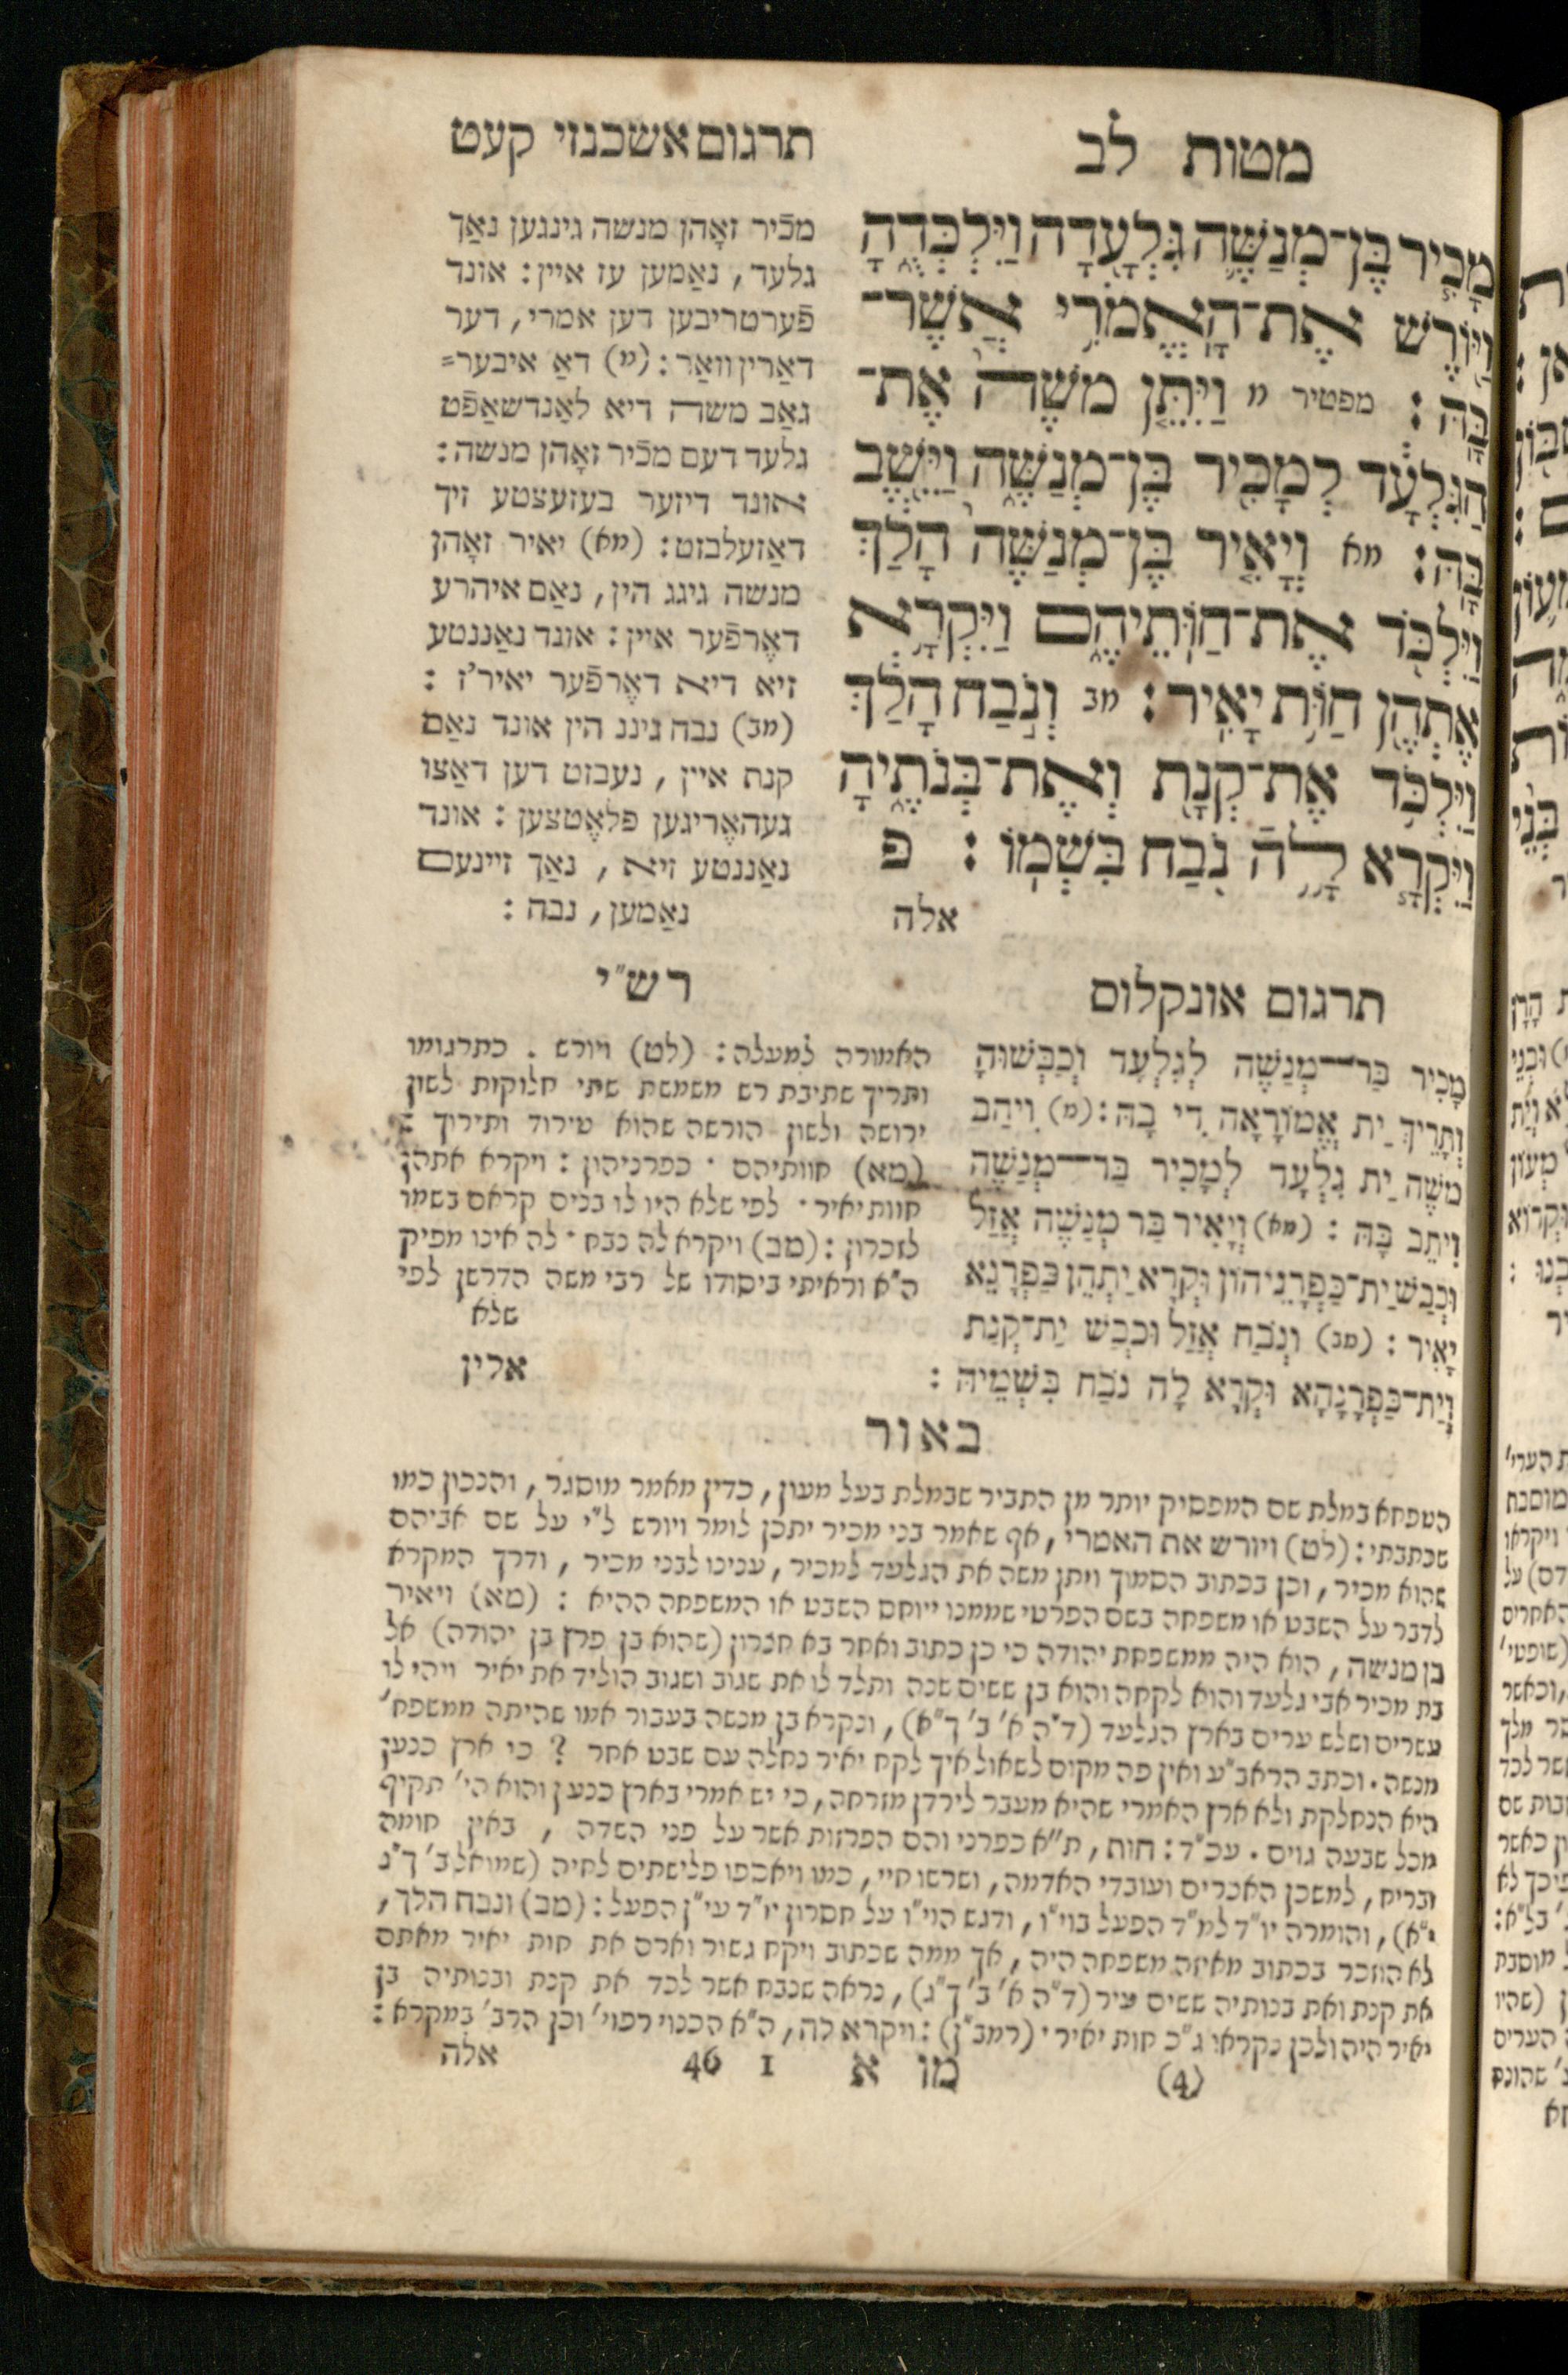 מטות לב
תרגום אשכנזי קעט
מָכִ֧יר בֶּן־מְנַשֶּׁ֛ה גִּלְעָ֖דָה וַֽיִּלְכְּדֻ֑הָ
וַיּ֖וֹרֶשׁ אֶת־הָאֱמֹרִ֥י אֲשֶׁר־
בָּֽהּ׃ מפטיר מ וַיִּתֵּ֤ן מֹשֶׁה֙ אֶת־
הַגִּלְעָ֔ד לְמָכִ֖יר בֶּן־מְנַשֶּׁ֑ה וַיֵּ֖שֶׁב
בָּֽהּ׃ מא וְיָאִ֤יר בֶּן־מְנַשֶּׁה֙ הָלַ֔ךְ
וַיִּלְכֹּ֖ד אֶת־חַוֺּֽתֵיהֶ֑ם וַיִּקְרָ֥א
אֶתְהֶ֖ן חַוֺּ֥ת יָאִֽיר׃ מב וְנֹ֣בַח הָלַ֔ךְ
וַיִּלְכֹּ֥ד אֶת־קְנָ֖ת וְאֶת־בְּנֹתֶ֑יהָ
וַיִּקְרָ֥א לָ֛ה נֹ֖בַח בִּשְׁמֽוֹ׃ פ
אלה
מכֿיר זאָהן מנשה גינגען נאַך
גלעד, נאַמען עז איין: אונד
פֿערטריבען דען אמרי, דער
דאַרין וואַר: (מ) דאַ איבער=
גאַב משה דיא לאַנדשאַפֿט
גלעד דעם מכֿיר זאָהן מנשה:
אונד דיזער בעזעצטע זיך
דאַזעלבזט: (מא) יאיר זאָהן
מנשה גיגג הין, נאַם איהרע
דאָרפֿער איין: אונד נאַננטע
זיא דיא דאָרפֿער יאיר'ז:
(מב) נבח גינג הין אונד נאַם
קנת איין, נעבזט דען דאַצו
געהאָריגען פלאָטצען: אונד
נאַננטע זיא, נאַך זיינעם
נאַמען, נבח:
תרגום אונקלוס
מָכִיר בַּר־מְנַשֶּׁה לְגִלְעָד וְכַבְּשׁוּהָ
וְתָרֵיךְ יַת אֱמוֹרָאָה דִי בָהּ: (מ) וִיהַב
משֶׁה יַת גִּלְעָד לְמָכִיר בַּר־מְנַשֶּׁה
וִיתֵב בָּהּ: (מא) וְיָאִיר בַּר מְנַשֶּׁה אֲזַל
וּכְבַשׁ יַת־כַּפְרָנֵיהוֹן וּקְרָא יַתְהֵן כַּפְרָנֵא
יָאִיר: (מב) וְנֹבַח אֲזַל וּכְבַשׁ יַת־קְנָת
וְיַת־כַּפְרָנָהָא וּקְרָא לָהּ נֹבַח בִּשְׁמֵיהּ:
רש"י
האמורה למעלה: (לט) ויורש. כתרגומו
ותריך שתיבת רש משמשת שתי חלוקות לשון
ירושה ולשון הורשה שהוא טירוד ותירוך:
(מא) חוותיהם. כפרניהון: ויקרא אתהן
חוות יאיר. לפי שלא היו לו בנים קראם בשמו
לזכרון: (מב) ויקרא לה נבח. לה אינו מפיק
ה"א וראיתי ביסודו של רבי משה הדרשן לפי
שלא
אלין
באור
הטפחא במלת שם המפסיק יותר מן התביר שבמלת בעל מעון, כדין מאמר מוסגר, והנכון כמו
שכתבתי: (לט) ויורש את האמרי, אף שאמר בני מכיר יתכן לומר ויורש ל"י על שם אביהם
שהוא מכיר, וכן בכתוב הסמוך ויתן משה את הגלעד למכיר, ענינו לבני מכיר, ודרך המקרא
לדבר על השבט או משפחה בשם הפרטי שממנו ייוחס השבט או המשפחה ההיא: (מא) ויאיר
בן מנשה, הוא היה ממשפחת יהודה כי כן כתוב ואחר בא חצרון (שהוא בן פרץ בן יהודה) אל
בת מכיר אבי גלעד והוא לקחה והוא בן ששים שנה ותלד לו את שגוב ושגוב הוליד את יאיר ויהי לו
עשרים ושלש ערים בארץ הגלעד (ד"ה א' ב' ך"א), ונקרא בן מנשה בעבור אמו שהיתה ממשפח'
מנשה. וכתב הראב"ע ואין פה מקום לשאול איך לקח יאיר נחלה עם שבט אחר? כי ארץ כנען
היא הנחלקת ולא ארץ האמרי שהיא מעבר לירדן מזרחה, כי יש אמרי בארץ כנען והוא הי' תקיף
מכל שבעה גוים. עכ"ד: חות, ת"א כפרני והם הפרזות אשר על פני השדה, באין חומה
ובריח, למשכן האכרים ועובדי האדמה, ושרשו חיי, כמו ויאספו פלישתים לחיה (שמואל ב' ך"ג
י"א), והומרה יו"ד למ"ד הפעל בוי"ו, ודגש הוי"ו על חסרון יו"ד עי"ן הפעל: (מב) ונבח הלך,
לא הוזכר בכתוב מאיזה משפחה היה, אך ממה שכתוב ויקח גשור וארם את חות יאיר מאתם
את קנת ואת בנותיה ששים עיר (ד"ה א' ב' ך"ג), נראה שנבח אשר לכד את קנת ובנותיה בן
יאיר היה ולכן נקראו ג"כ חות יאיר. (רמב"ן): ויקרא לה, ה"א הכנוי רפוי' וכן הרב' במקרא:
(4) מו א 1 46 אלה